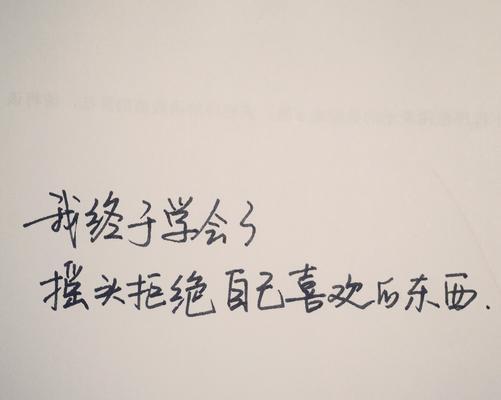 我终于学会了
摇头拒绝自己喜欢的东西.